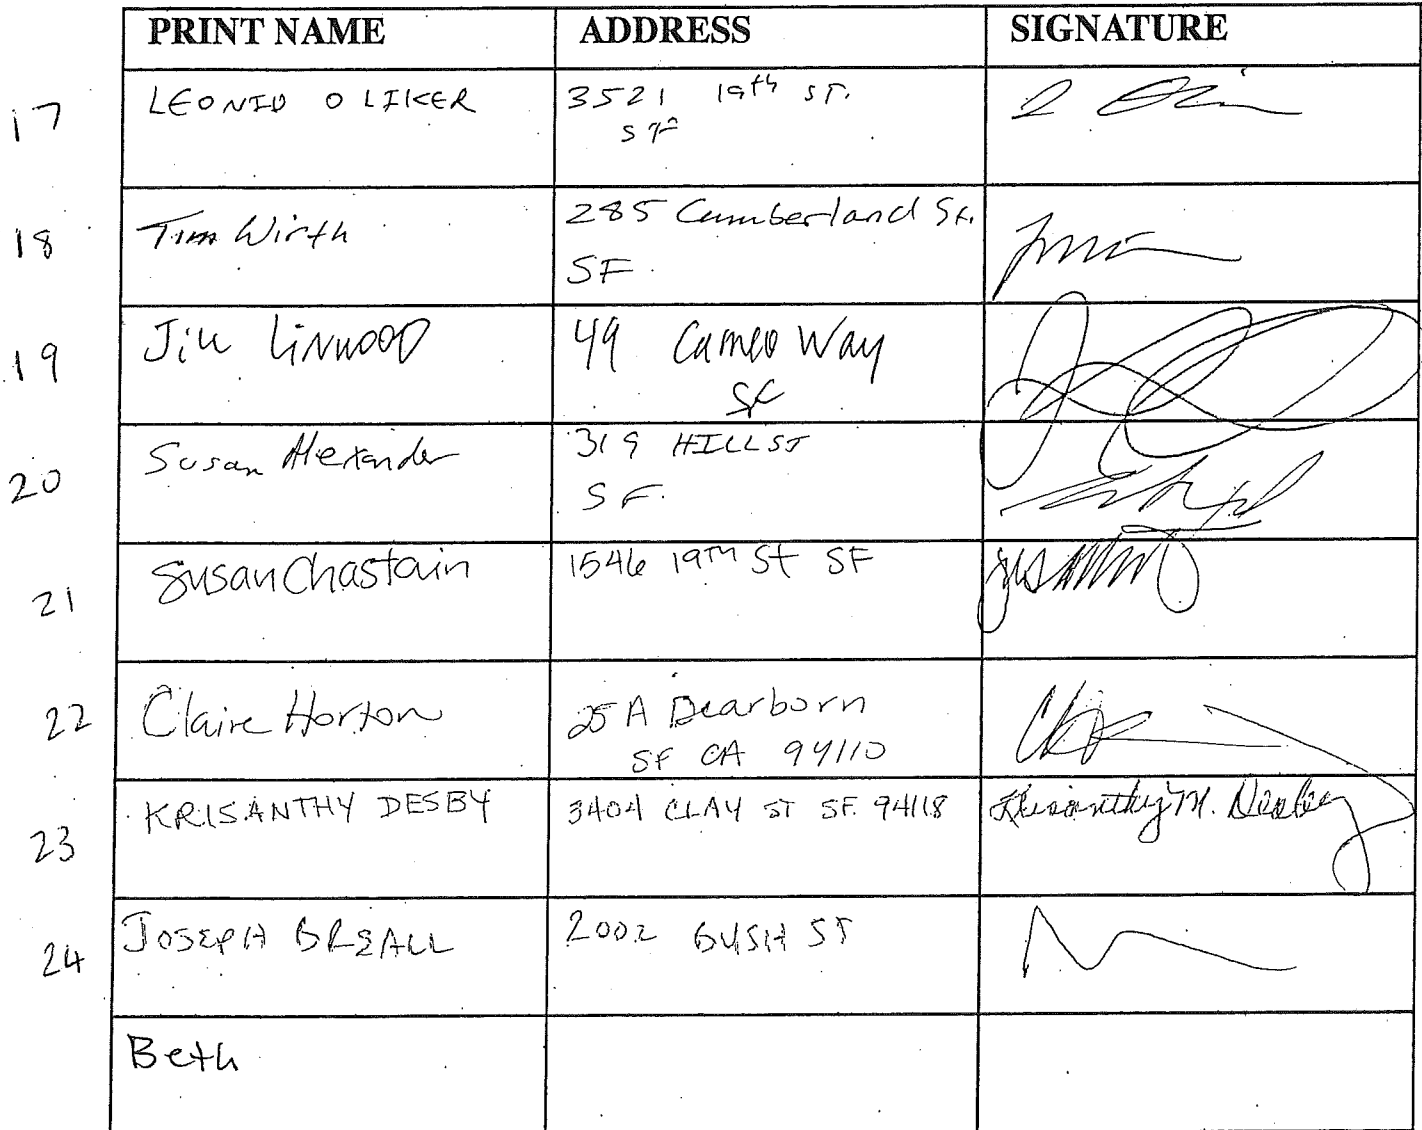 PRINT NAME ADDRESS SIGNATURE
17 LEONID OLIKER 3521 19th ST.
SF
18 Tim Wirth 285 Cumberland St.
SF
19 Jill LINWOOD 49 Cameo Way
SF
20 Susan Alexander 319 HILL ST
SF
21 Susan Chastain 1546 19TH St SF
22 Claire Horton 25 A Dearborn
SF CA 94110
23 KRISANTHY DESBY 3404 CLAY ST SF 94118 Krisanthy M. Desby
24 JOSEPH BREALL 2002 BUSH ST
Beth